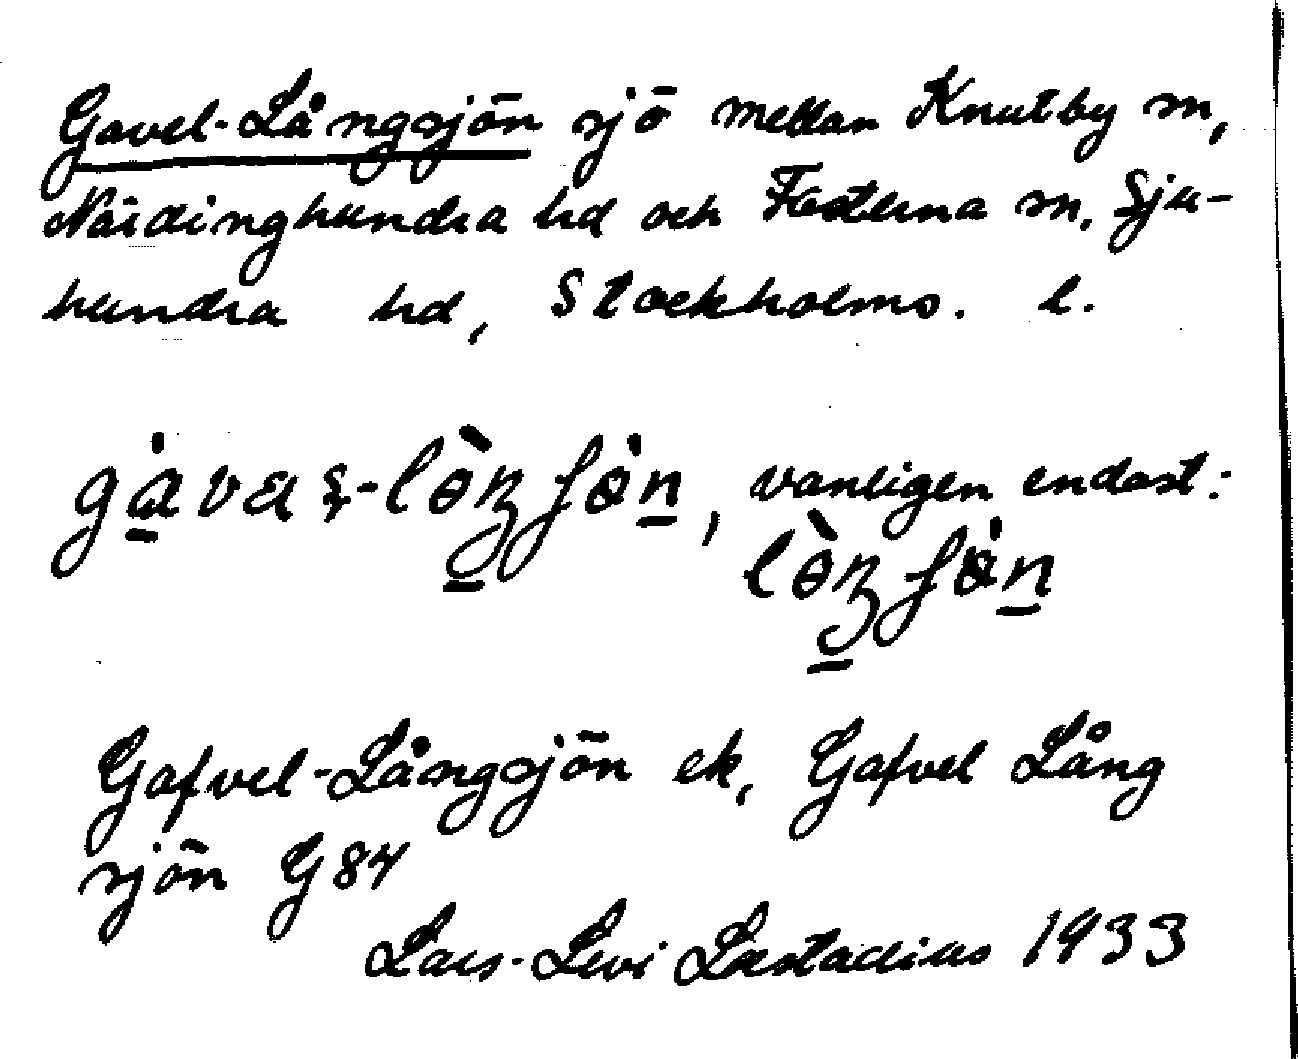 Gavel-Långsjön sjö mellan Knutby sn,
Närdinghundra hd och Fasterna sn. Sju-
hundra hd, Stockholms. l.
vanligen endast:
Gafvel-Långsjön ek, Gafvel Lång
sjön G84
Lars-Levi Læstadius 1933